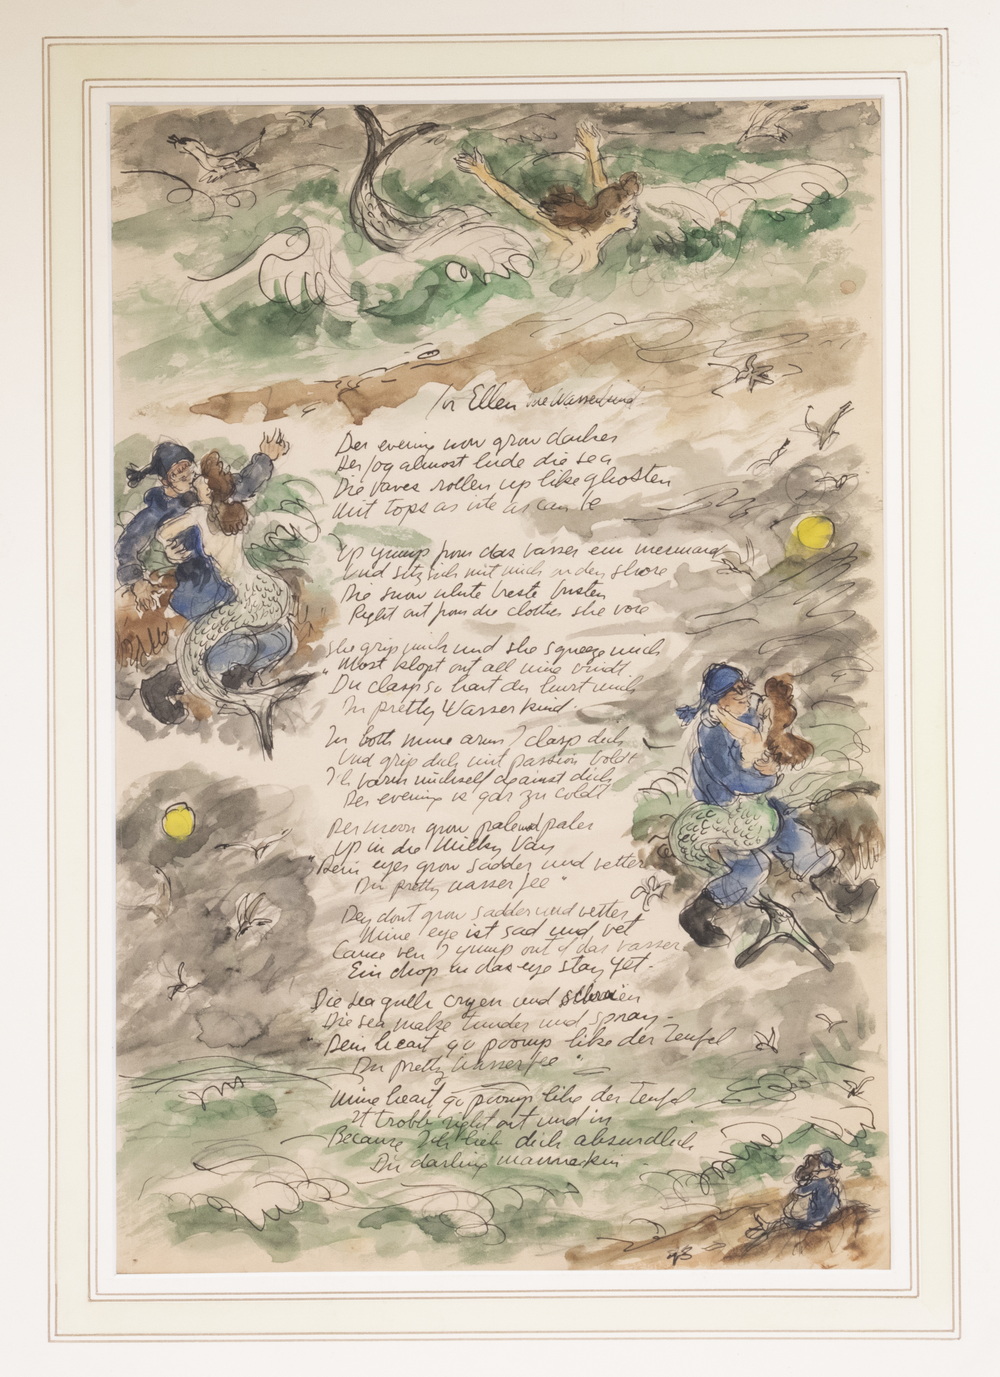 for Ellen the Wasserkind
Der evening now grow darker
Der fog almost hide die sea
Die vaves rollen up like ghosten
Mit tops as vite as can be
Up yump from das vasser ein mermaid
Und sitz sich mit mich on den shore
Die snow white breste bursten
Right out from die clothes she vore
She grip mich und she squeeze mich
"Most klopt out all mine vindt.
Du clasp so hart du hurst mich
Du pretty Wasserkind.
In both mine arms I clasp dich
Und grip dich mit passion boldt
I'll varm michself against dich
Der evening is gar zu coldt
Der moon grow pale und paler
Up in die Milky Vay
"Dein eyes grow sadder und vetter
Du pretty wasserfee"
Dey dont grow sadder und vetter
Mine eye ist sad und vet
Cause ven I yump out of das vasser
Ein drop in das eye stay yet.
Die sea gulls cryen und schreien
Die sea make tunder und spray.
"Dein heart go poomp like der Teufel
Du pretty Wasserfee"
Mine heart go poomp like der Teufel
It trobb right out und in
Because Ich lieb dich absurdlich
Du darling mannekin